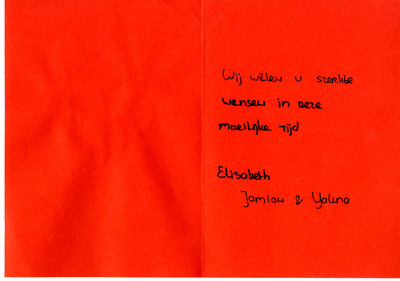 Wij willen u sterkte
wensen in deze
moeilijke tijd
Elisabeth
Jomian & Yalina